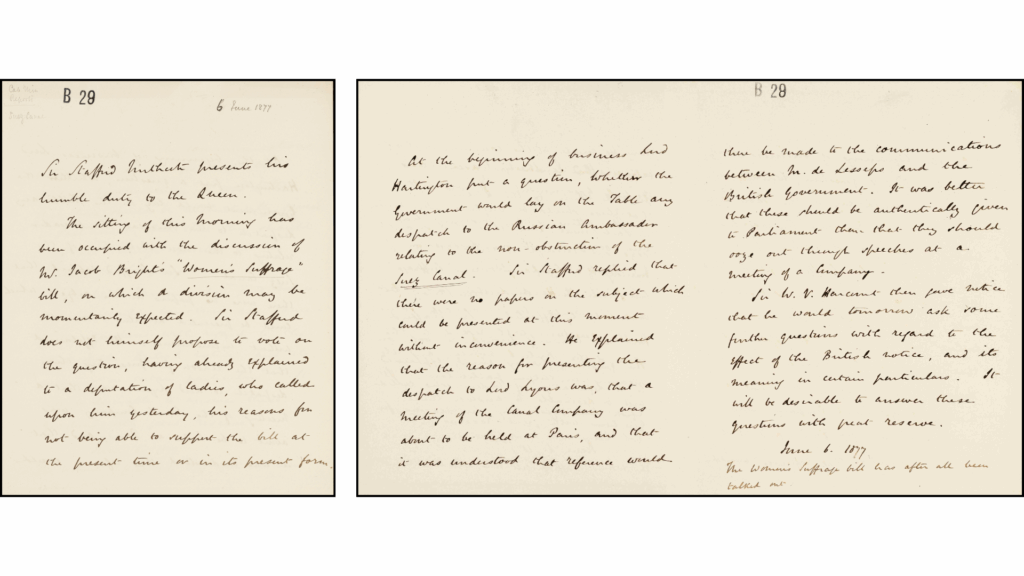 B 29
6 June 1877
Sir Stafford Northcote presents his
humble duty to the Queen.
The sitting of this morning has
been occupied with the discussion of
Mr. Jacob Bright's "Women's Suffrage"
bill, on which a division may be
momentarily expected. Sir Stafford
does not himself propose to vote on
the question, having already explained
to a deputation of ladies, who called
upon him yesterday, his reasons for
not being able to support the bill at
the present time or in its present form.
At the beginning of business Lord
Hartington put a question, whether the
Government would lay on the Table any
despatch to the Russian Ambassador
relating to the non-obstruction of the
Suez Canal. Sir Stafford replied that
there were no papers on the subject which
could be presented at this moment
without inconvenience. He explained
that the reason for presenting the
despatch to Lord Lyons was, that a
meeting of the Canal Company was
about to be held at Paris, and that
it was understood that reference would
B 29
there be made to the communications
between M. de Lesseps and the
British Government. It was better
that these should be authentically given
to Parliament than that they should
ooze out through speeches at a
meeting of a Company.
Sir W. V. Harcourt then gave notice
that he would tomorrow ask some
further questions with regard to the
effect of the British notice, and its
meaning in certain particulars. It
will be desirable to answer these
questions with great reserve.
June 6. 1877
The Women's Suffrage bill has after all been
talked out.